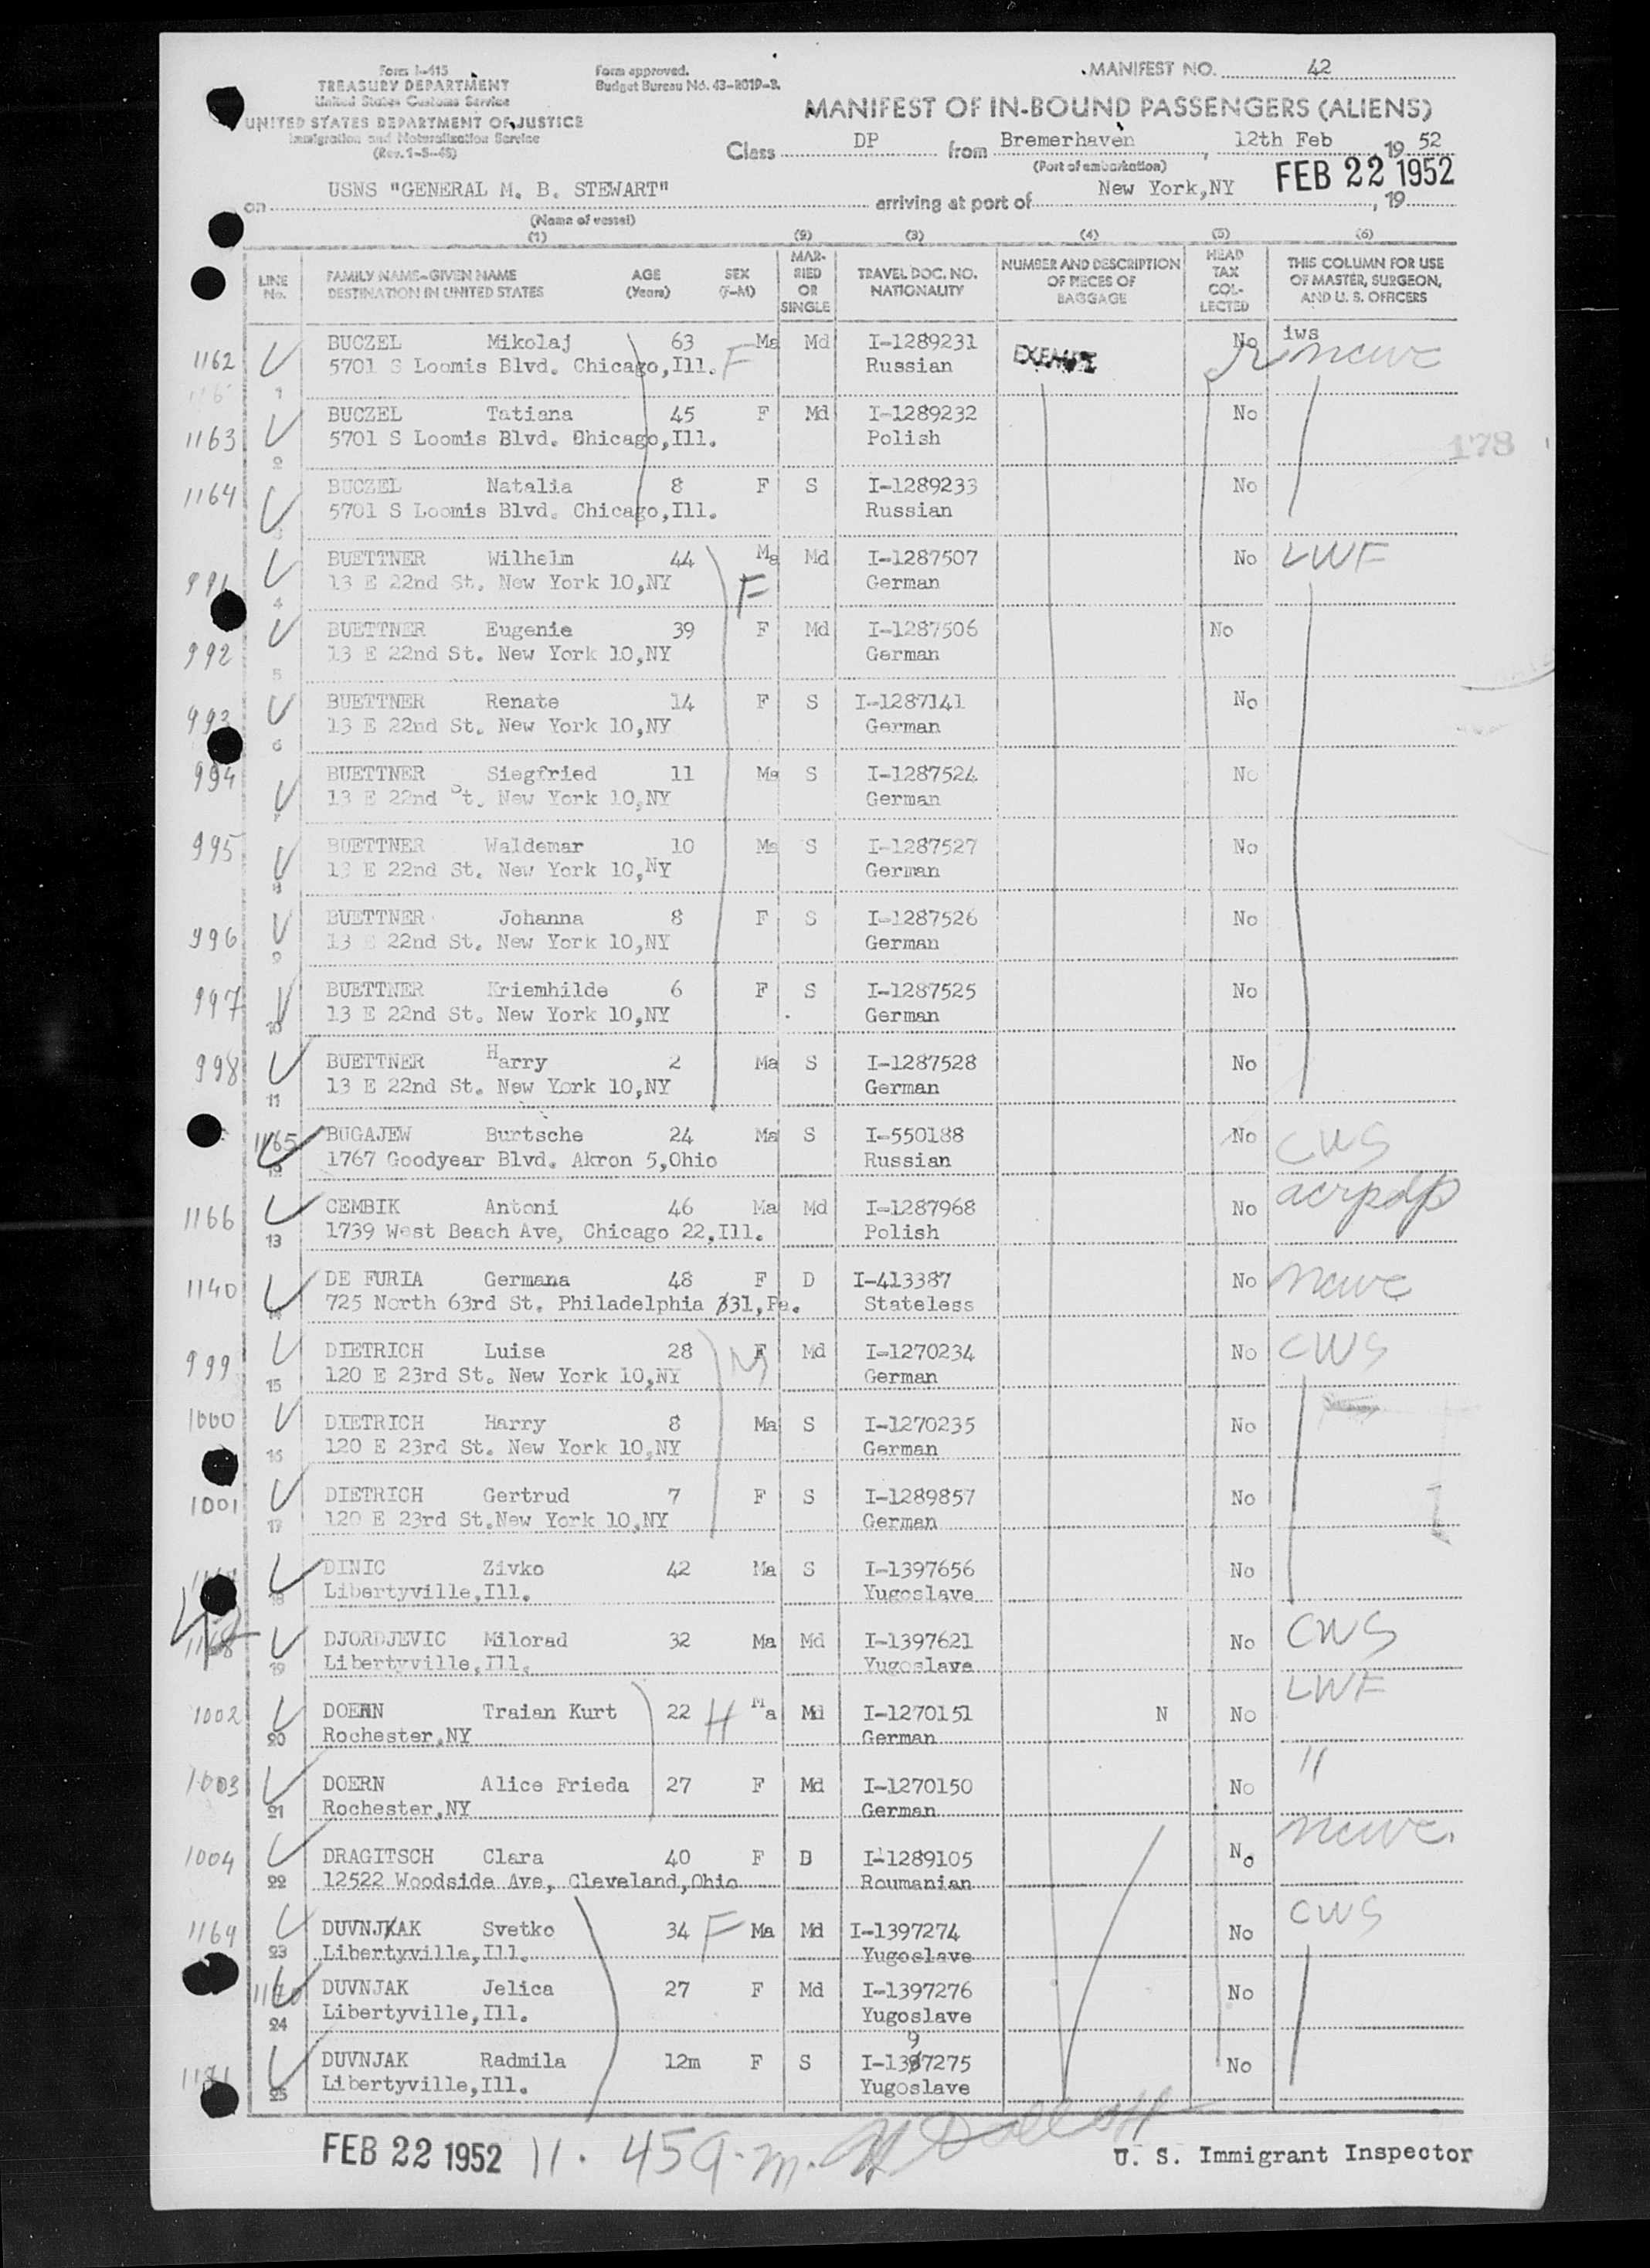 Form I-415
TREASURY DEPARTMENT
United States Customs Service
UNITED STATES DEPARTMENT OF JUSTICE
Immigration and Naturalization Service
(Rev. 1-5-48)
Form approved.
Budget Bureau No. 43-R019-3.
MANIFEST NO. 42
MANIFEST OF IN-BOUND PASSENGERS (ALIENS)
Class DP from Bremerhaven, 12th Feb 19 52
(Port of embarkation)
on USNS "GENERAL M. B. STEWART" arriving at port of New York,NY FEB 22 1952, 19
(Name of vessel)
(1) (2) (3) (4) (5) (6)
LINE No. FAMILY NAME-GIVEN NAME DESTINATION IN UNITED STATES AGE (Years) SEX (F-M) MARRIED OR SINGLE TRAVEL DOC. NO. NATIONALITY NUMBER AND DESCRIPTION OF PIECES OF BAGGAGE HEAD TAX COLLECTED THIS COLUMN FOR USE OF MASTER, SURGEON, AND U. S. OFFICERS
1162 BUCZEL Mikolaj 63 Ma Md I-1289231 EXEMPT No iws
1 5701 S Loomis Blvd. Chicago,Ill. F Russian ncwc
1163 BUCZEL Tatiana 45 F Md I-1289232 No
2 5701 S Loomis Blvd. Chicago,Ill. Polish
178
1164 BUCZEL Natalia 8 F S I-1289233 No
3 5701 S Loomis Blvd. Chicago,Ill. Russian
991 BUETTNER Wilhelm 44 Ma Md I-1287507 No LWF
4 13 E 22nd St. New York 10,NY F German
992 BUETTNER Eugenie 39 F Md I-1287506 No
5 13 E 22nd St. New York 10,NY German
993 BUETTNER Renate 14 F S I-1287141 No
6 13 E 22nd St. New York 10,NY German
994 BUETTNER Siegfried 11 Ma S I-1287524 No
7 13 E 22nd St. New York 10,NY German
995 BUETTNER Waldemar 10 Ma S I-1287527 No
8 13 E 22nd St. New York 10,NY German
996 BUETTNER Johanna 8 F S I-1287526 No
9 13 E 22nd St. New York 10,NY German
997 BUETTNER Kriemhilde 6 F S I-1287525 No
10 13 E 22nd St. New York 10,NY German
998 BUETTNER Harry 2 Ma S I-1287528 No
11 13 E 22nd St. New York 10,NY German
1165 BUGAJEW Burtsche 24 Ma S I-550188 No CWS
12 1767 Goodyear Blvd. Akron 5,Ohio Russian
1166 CEMBIK Antoni 46 Ma Md I-1287968 No acrpdp
13 1739 West Beach Ave, Chicago 22,Ill. Polish
1140 DE FURIA Germana 48 F D I-413387 No ncwc
14 725 North 63rd St. Philadelphia 331,Pa. Stateless
999 DIETRICH Luise 28 F Md I-1270234 No CWS
15 120 E 23rd St. New York 10,NY M German
1000 DIETRICH Harry 8 Ma S I-1270235 No
16 120 E 23rd St. New York 10,NY German
1001 DIETRICH Gertrud 7 F S I-1289857 No
17 120 E 23rd St.New York 10,NY German
DINIC Zivko 42 Ma S I-1397656 No
18 Libertyville,Ill. Yugoslave
42
1168 DJORDJEVIC Milorad 32 Ma Md I-1397621 No CWS
19 Libertyville,Ill. Yugoslave
1002 DOERN Traian Kurt 22 H Ma Md I-1270151 N No LWF
20 Rochester,NY German
1003 DOERN Alice Frieda 27 F Md I-1270150 No "
21 Rochester,NY German
1004 DRAGITSCH Clara 40 F D I-1289105 No ncwc.
22 12522 Woodside Ave, Cleveland,Ohio Roumanian
1169 DUVNJKAK Svetko 34 F Ma Md I-1397274 No CWS
23 Libertyville,Ill. Yugoslave
1170 DUVNJAK Jelica 27 F Md I-1397276 No
24 Libertyville,Ill. Yugoslave
1171 DUVNJAK Radmila 12m F S I-1397275 No
25 Libertyville,Ill. Yugoslave
FEB 22 1952 11.45 a.m.
U. S. Immigrant Inspector